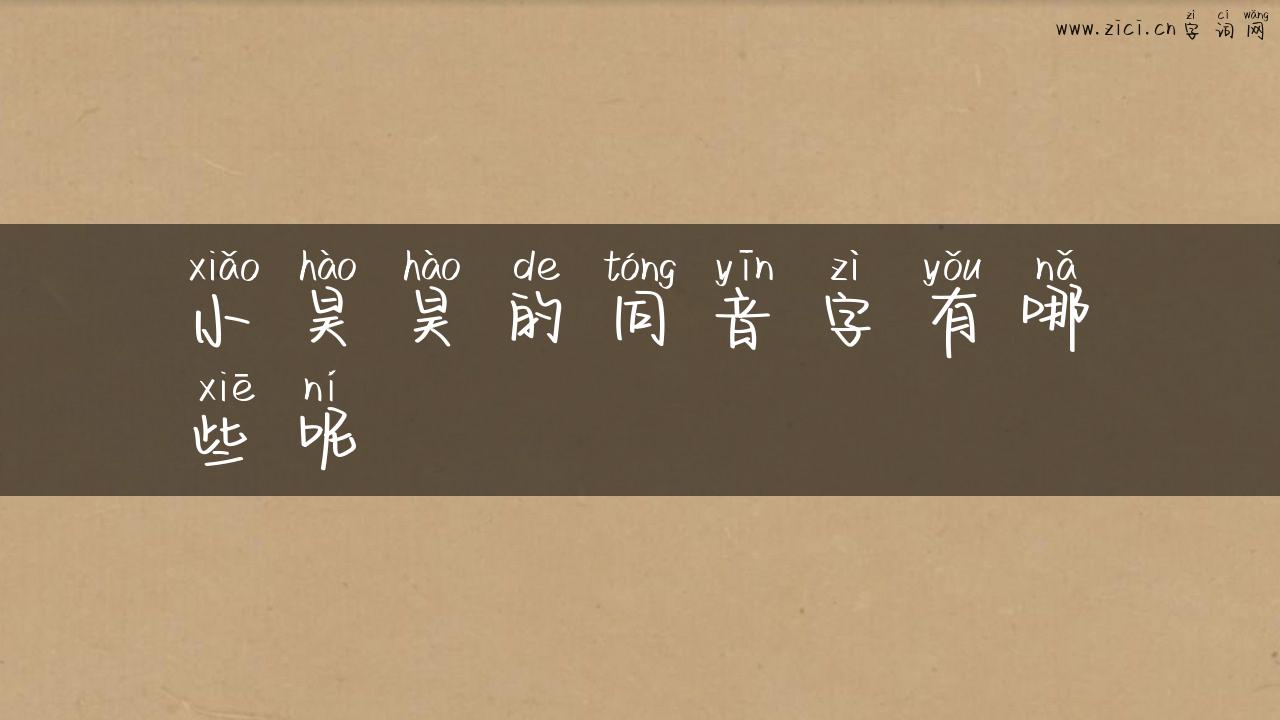 zì cí wǎng
www.zici.cn 字词网
xiǎo hào hào de tóng yīn zì yǒu nǎ
小昊昊的同音字有哪
xiē ní
些呢